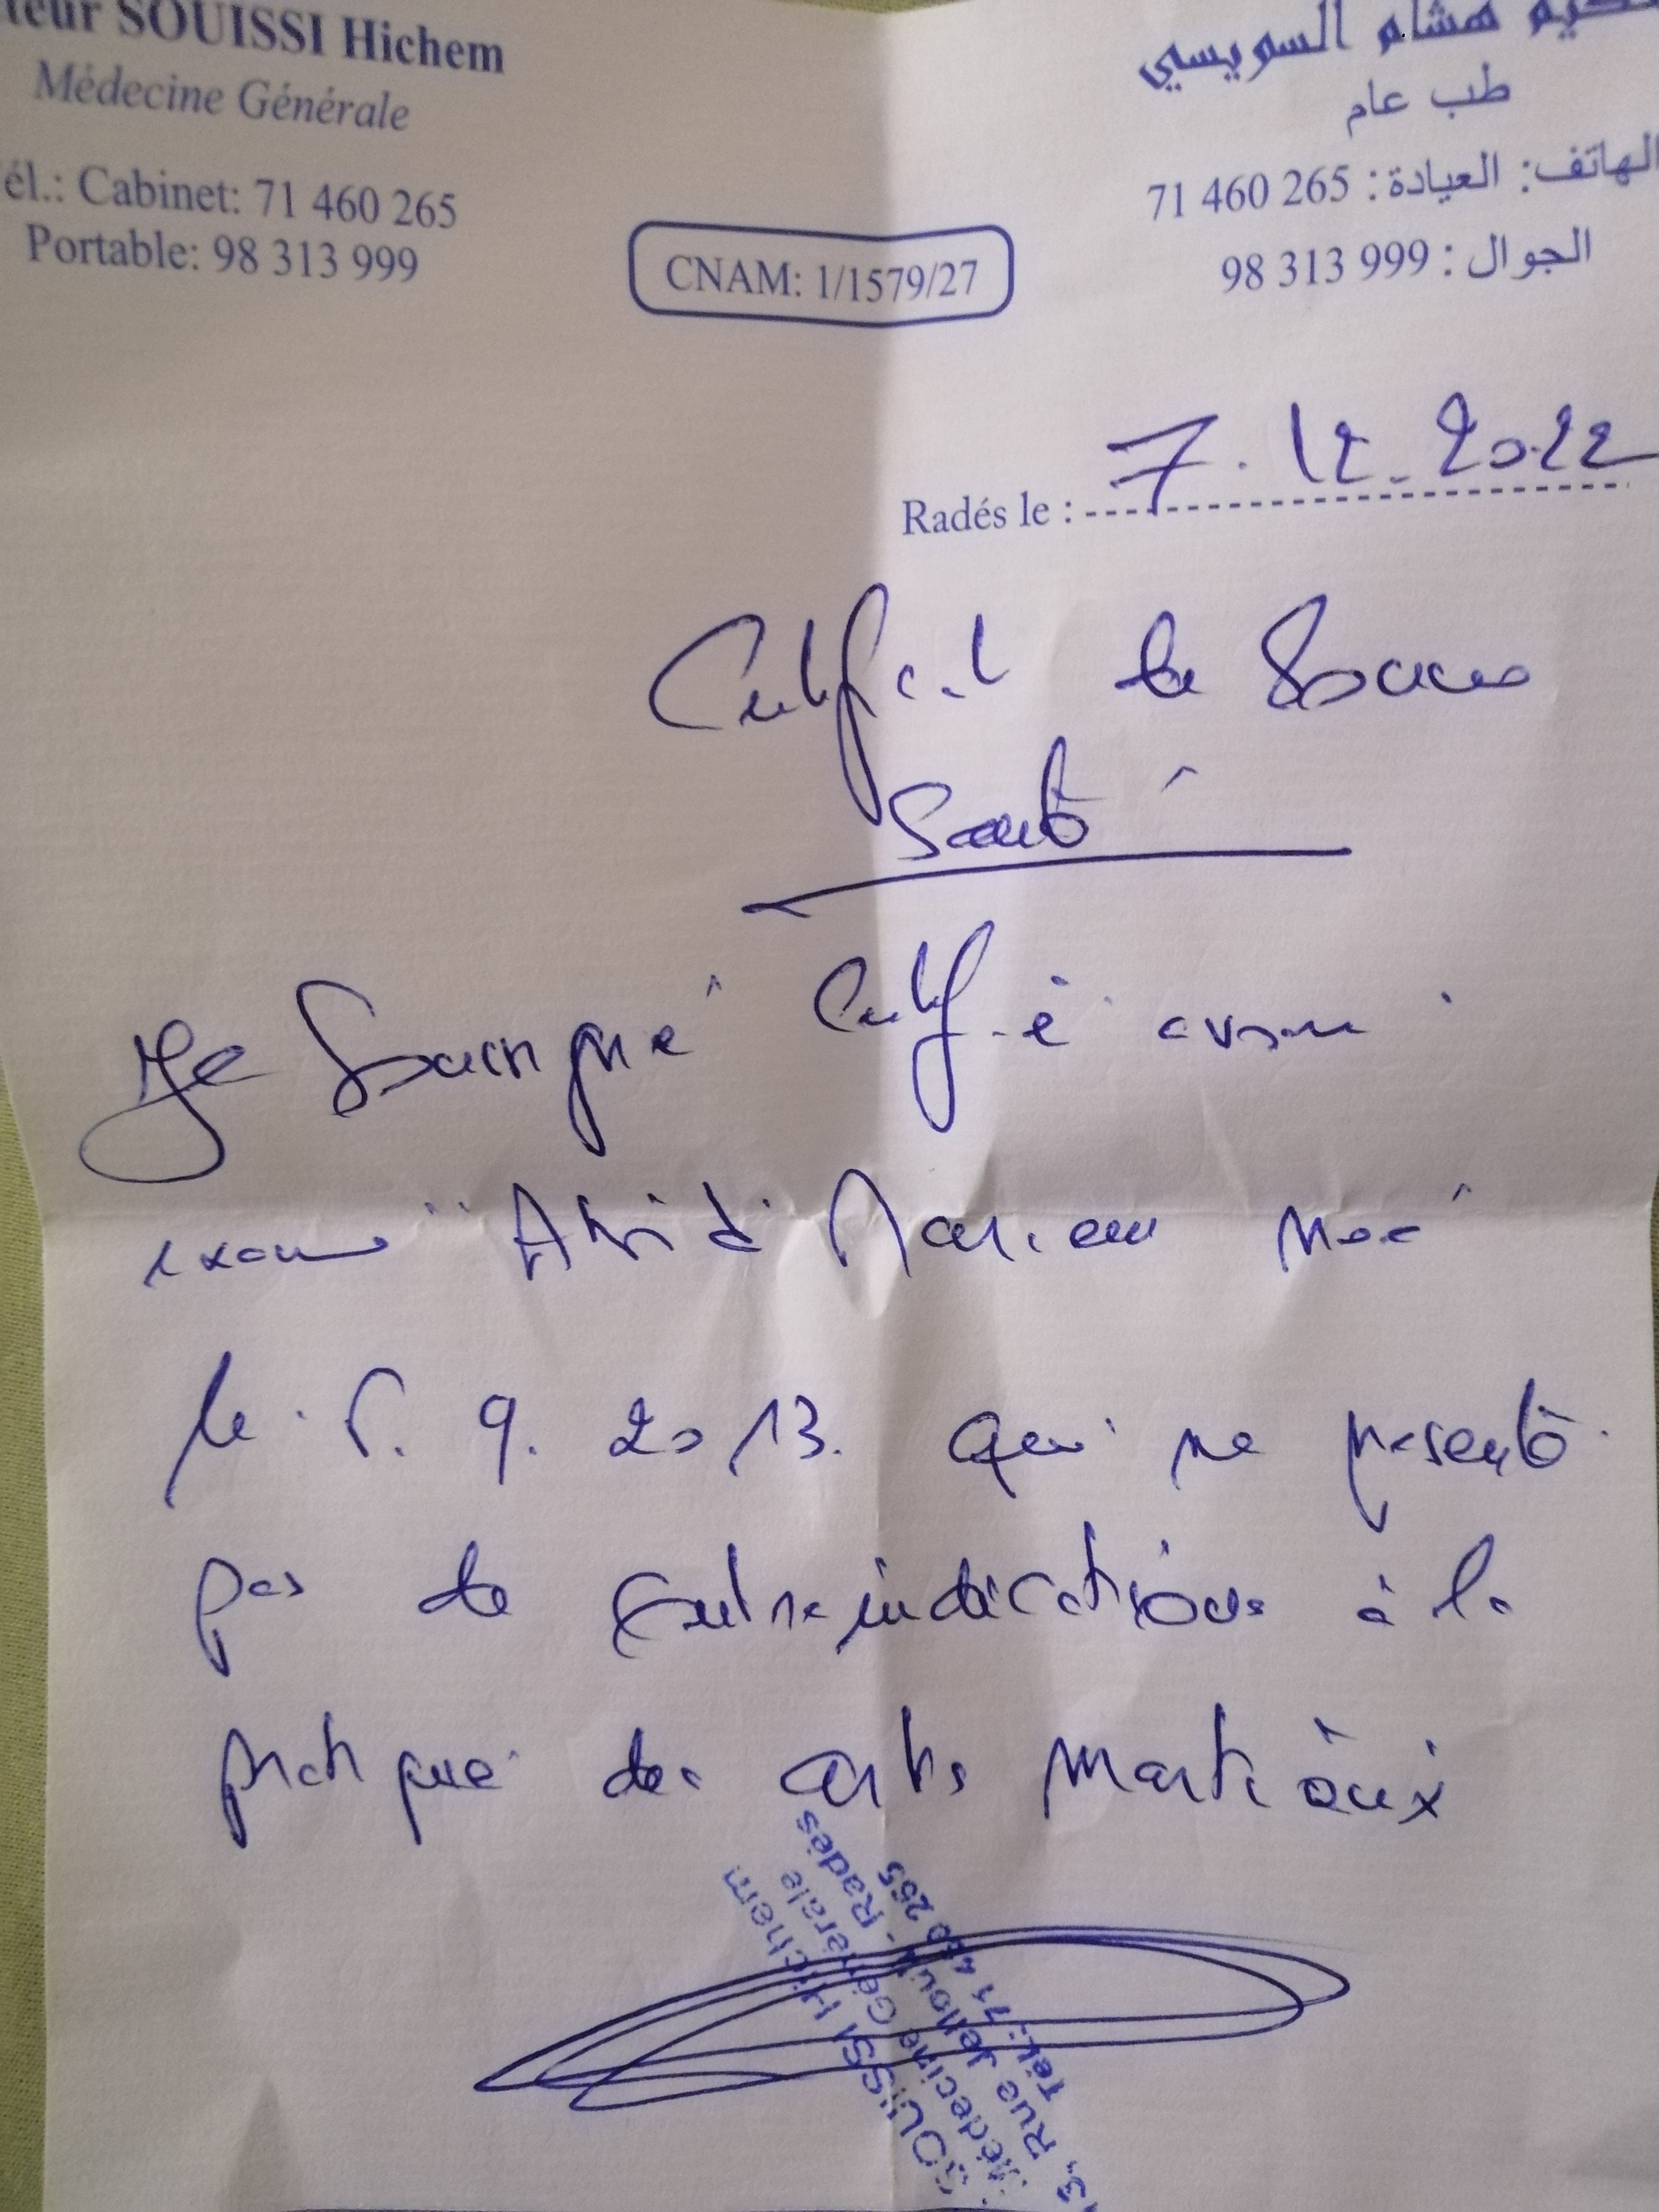 teur SOUISSI Hichem
Médecine Générale
él.: Cabinet: 71 460 265
Portable: 98 313 999
كيم هشام السويسي
طب عام
الهاتف: العيادة: 265 460 71
الجوال: 999 313 98
CNAM: 1/1579/27
Radés le : 7.12.2022
Certificat de Bonne
Santé
Je Soussigné Certifie avoir
examiné Abidi Mariem née
le 5. 9. 2013. qui ne présente
pas de contre indications à la
pratique des arts martiaux
SOUISSI Hichem
Médecine Générale
13, Rue - Radès
Tél.: 71 460 265